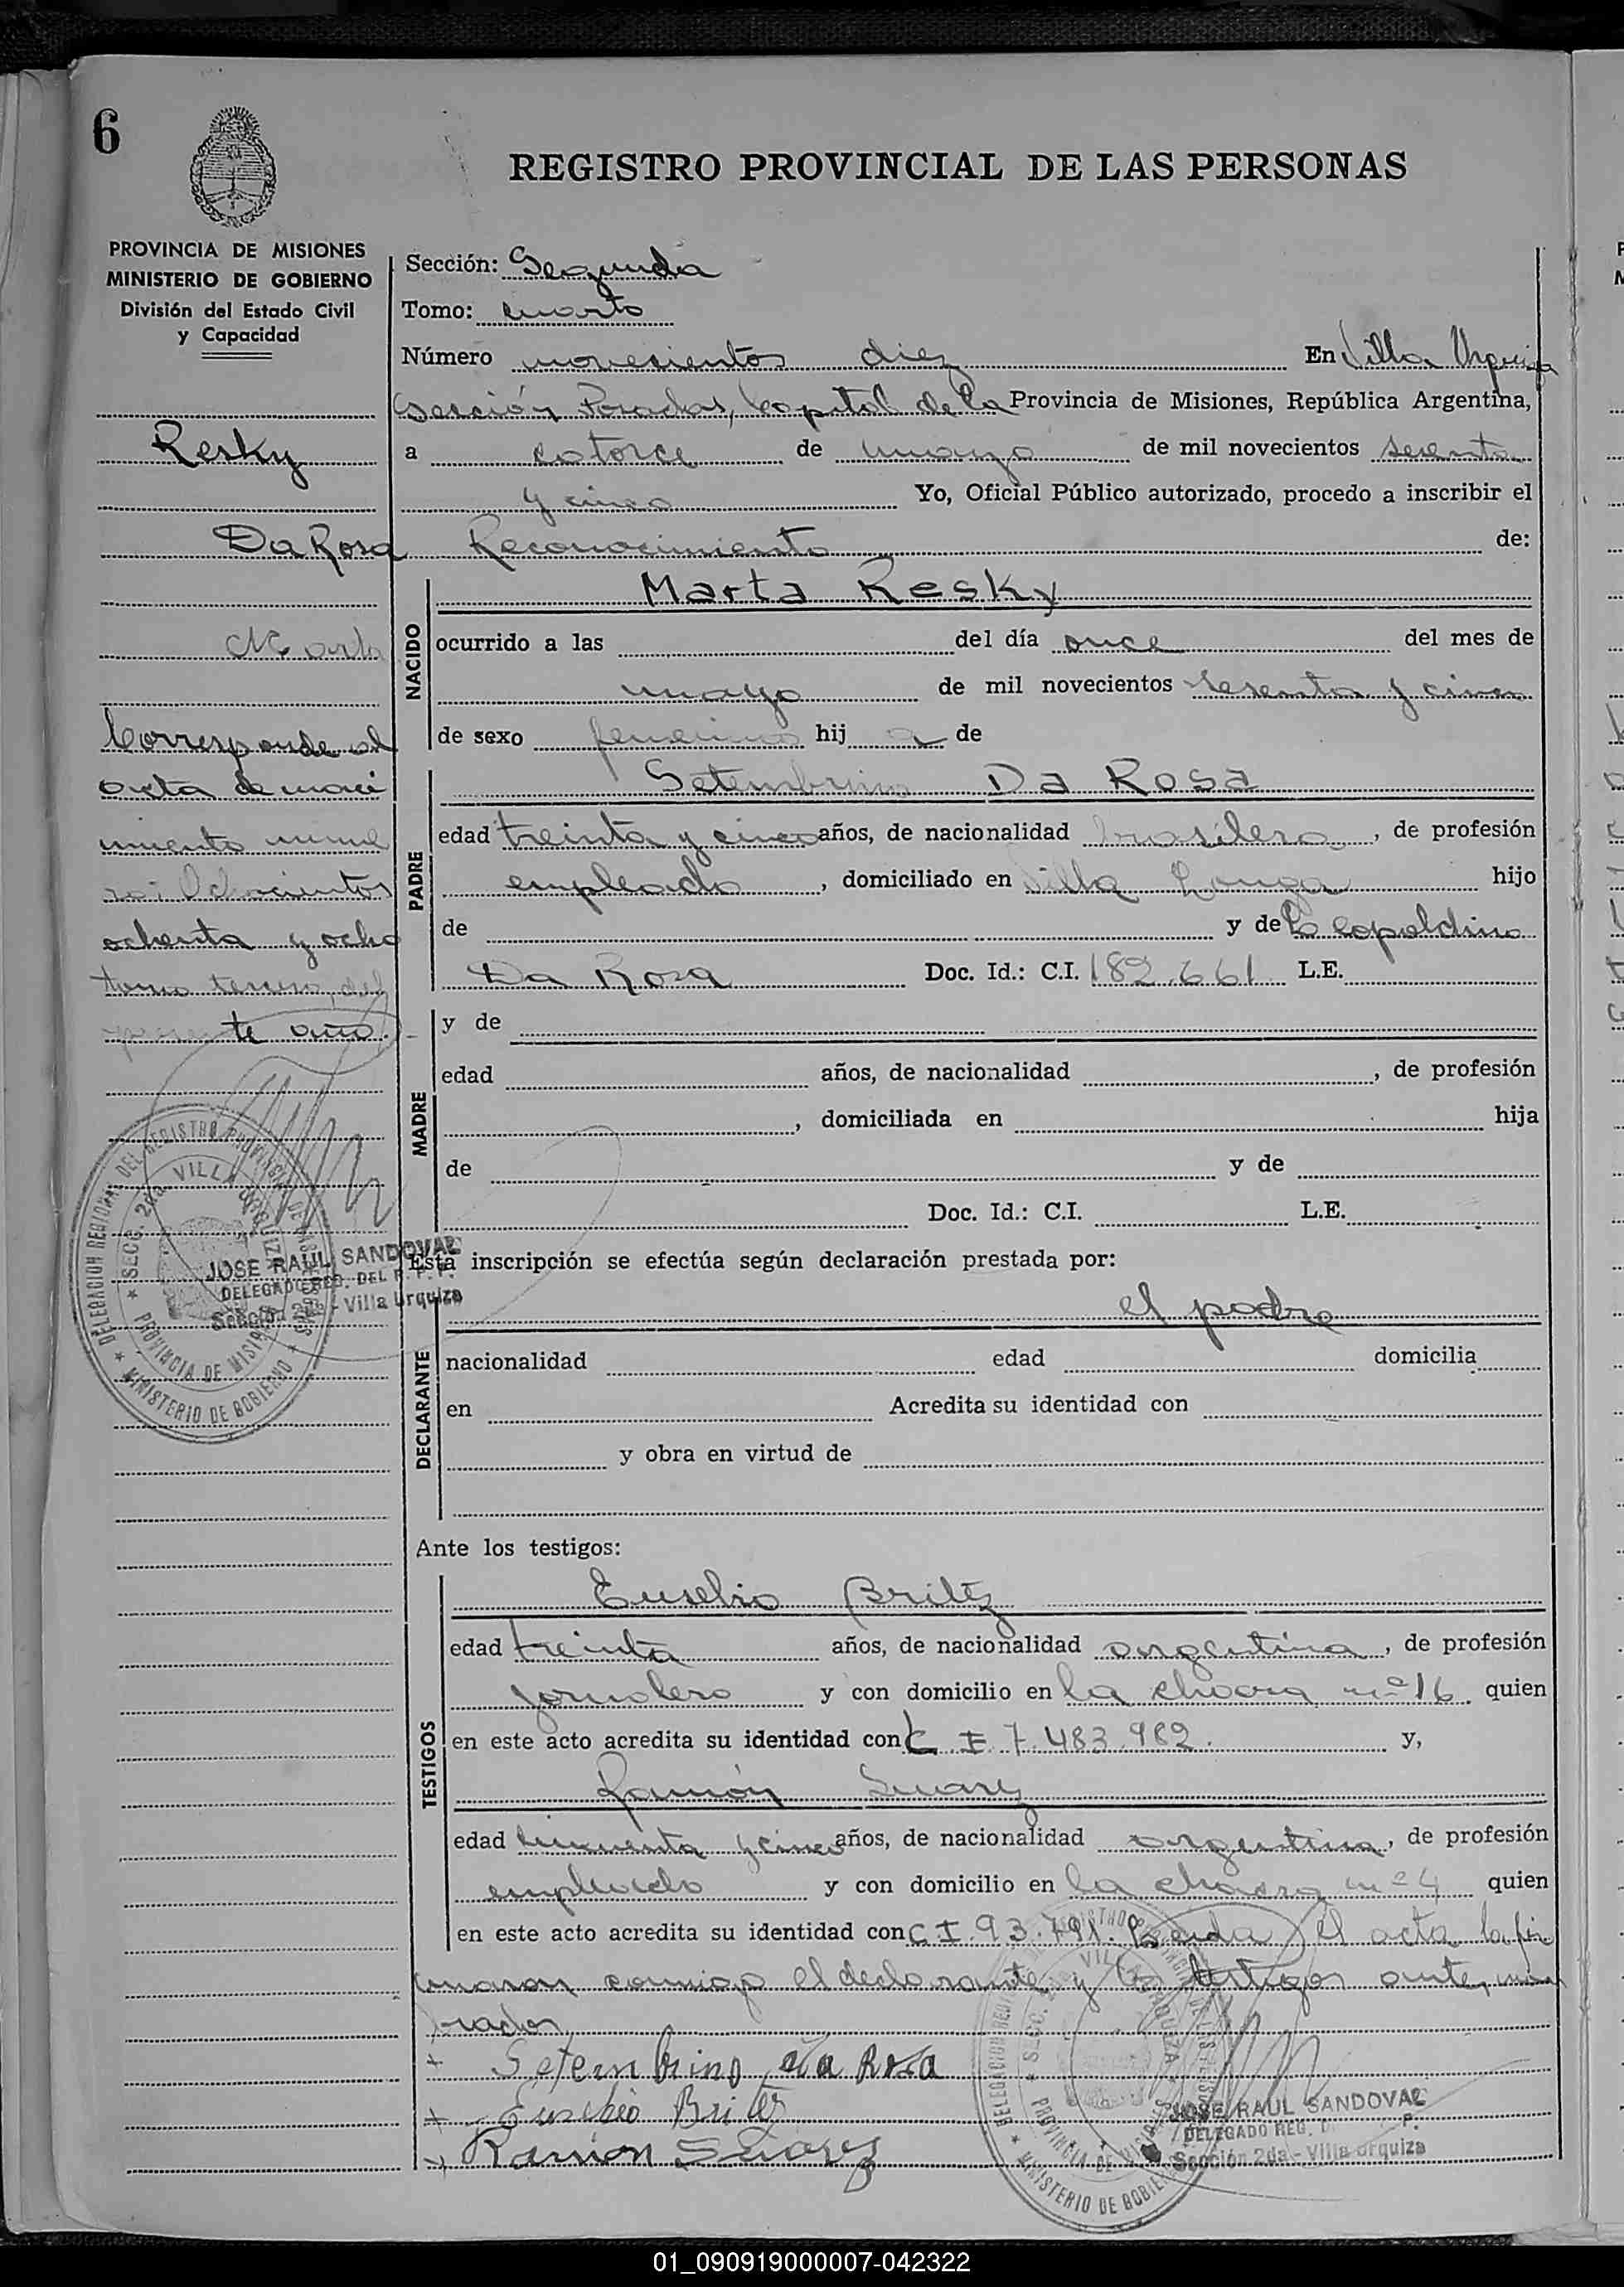 6
REGISTRO PROVINCIAL DE LAS PERSONAS
PROVINCIA DE MISIONES
MINISTERIO DE GOBIERNO
División del Estado Civil
y Capacidad
Resky
Da Rosa
Marta
Corresponde al
acta de naci
miento nume
ro: Ochocientos
ochenta y ocho
tomo tercero, del
presente año.
DELEGACION REGIONAL DEL REGISTRO PROVINCIAL DE LAS PERSONAS
SECC. 2da. VILLA URQUIZA
PROVINCIA DE MISIONES
MINISTERIO DE GOBIERNO
JOSE RAUL SANDOVAL
DELEGADO REG. DEL R. P. P.
Sección 2da - Villa Urquiza
Sección: Segunda
Tomo: cuarto
Número novecientos diez En Villa Urquiza
Sección Posadas, Capital de la Provincia de Misiones, República Argentina,
a catorce de mayo de mil novecientos sesenta
y cinco Yo, Oficial Público autorizado, procedo a inscribir el
Reconocimiento de:
NACIDO
Marta Resky
ocurrido a las del día once del mes de
mayo de mil novecientos sesenta y cinco
de sexo femenino hij a de
PADRE
Setembrino Da Rosa
edad treinta y cinco años, de nacionalidad brasilera, de profesión
empleado, domiciliado en Villa Longa hijo
de y de Leopoldina
Da Rosa Doc. Id.: C.I. 182.661 L.E.
MADRE
y de
edad años, de nacionalidad , de profesión
, domiciliada en hija
de y de
Doc. Id.: C.I. L.E.
Esta inscripción se efectúa según declaración prestada por:
DECLARANTE
el padre
nacionalidad edad domicilia
en Acredita su identidad con
y obra en virtud de
Ante los testigos:
TESTIGOS
Eusebio Britez
edad treinta años, de nacionalidad argentina, de profesión
jornalero y con domicilio en la chacra nº 16 quien
en este acto acredita su identidad con C I 7.483.982. y,
Ramón Suarez
edad cincuenta y cinco años, de nacionalidad argentina, de profesión
empleado y con domicilio en la chacra nº 4 quien
en este acto acredita su identidad con C I. 93.791. Leida el acta la fir
maron conmigo el declarante y los testigos ante nom
brados
+ Setembrino da Rosa
+ Eusebio Britez
+ Ramón Suarez
DELEGACION REGIONAL
SECC. 2da. VILLA URQUIZA
PROVINCIA DE MISIONES
MINISTERIO DE GOBIERNO
JOSE RAUL SANDOVAL
DELEGADO REG. D P.
Sección 2da - Villa Urquiza
01_090919000007-042322